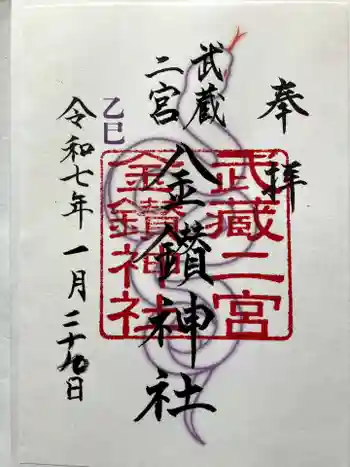 奉拝
武蔵
二宮
金鑚神社
武蔵二宮
金鑚神社
乙巳
令和七年一月二十 日